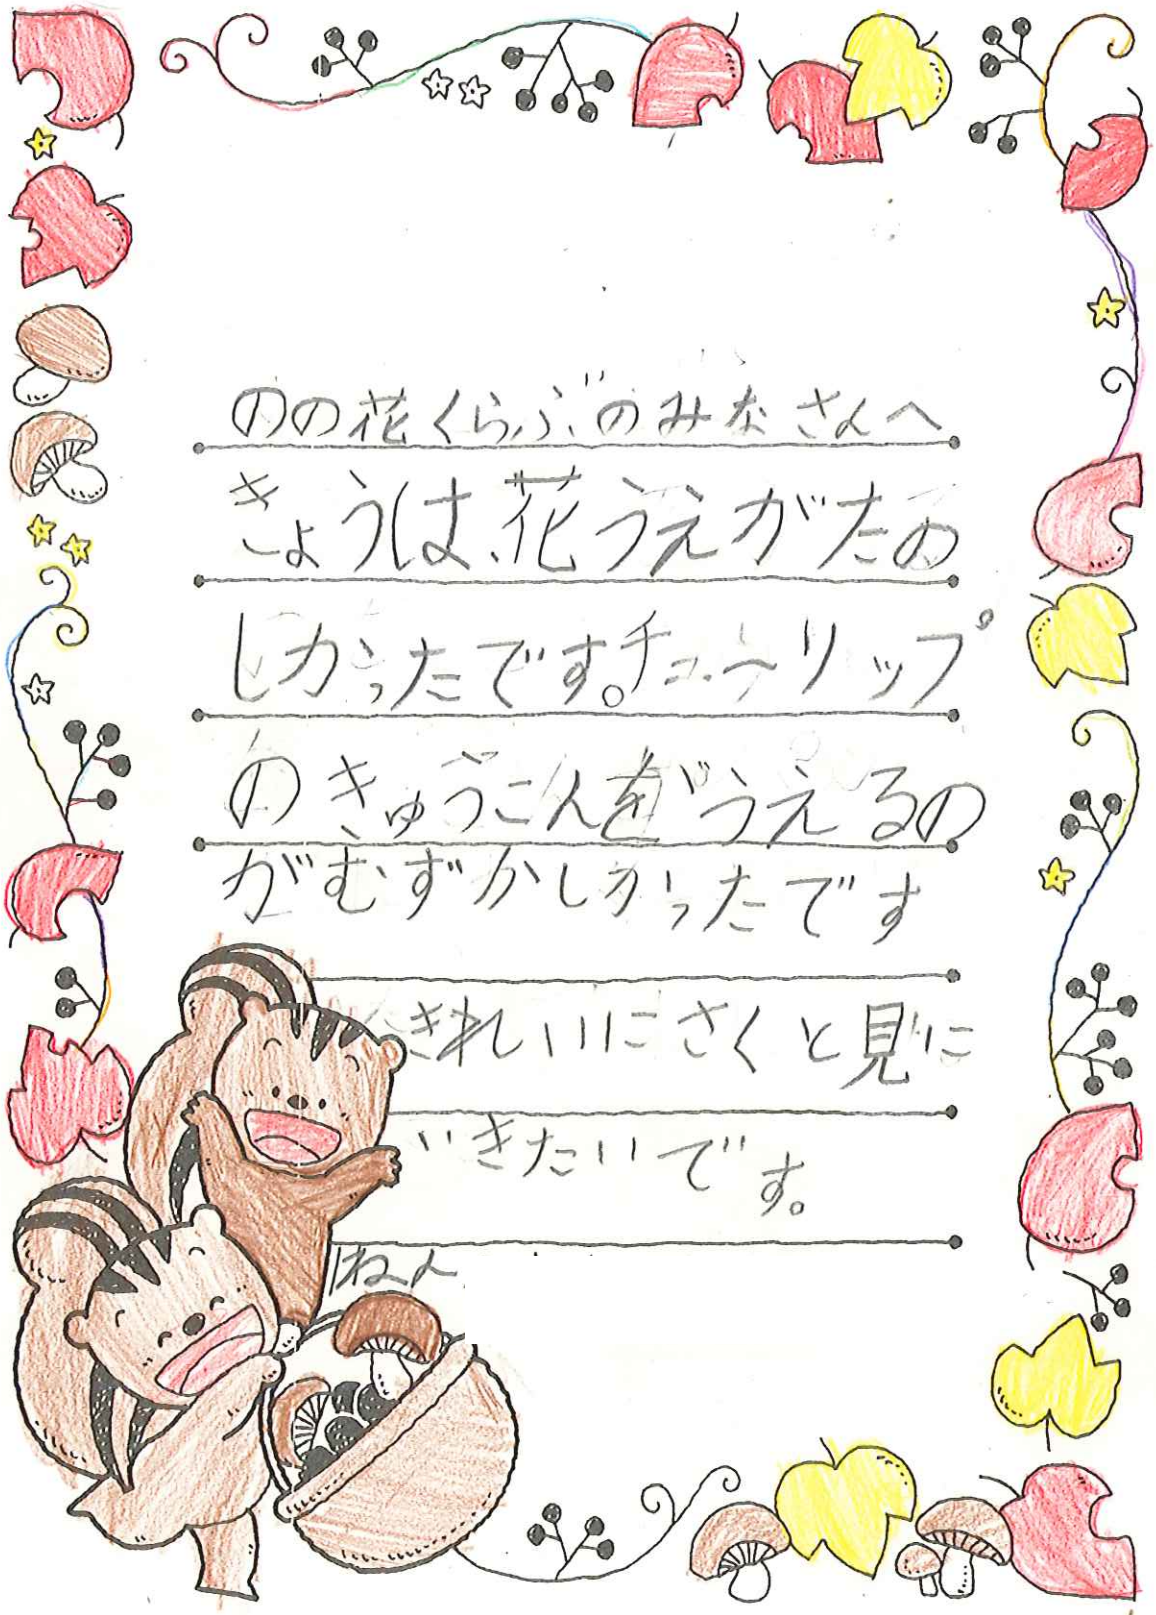 のの花くらぶのみなさんへ
きょうは、花うえがたの
しかったです。チューリップ
のきゅうこんをうえるの
がむずかしかったです
きれいにさくと見に
いきたいです。
1ねん